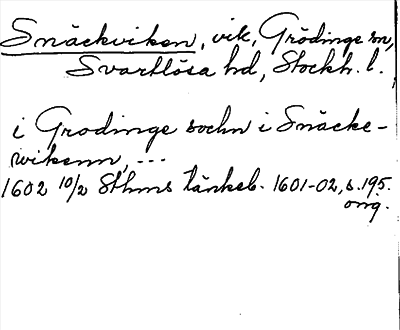 Snäckviken, vik, Grödinge sn,
Svartlösa hd, Stockh. l.
i Grodinge sochn i Snäcke-
wikenn, ---
1602 10/2 Sthms tänkeb. 1601-02, s. 195.
orig.